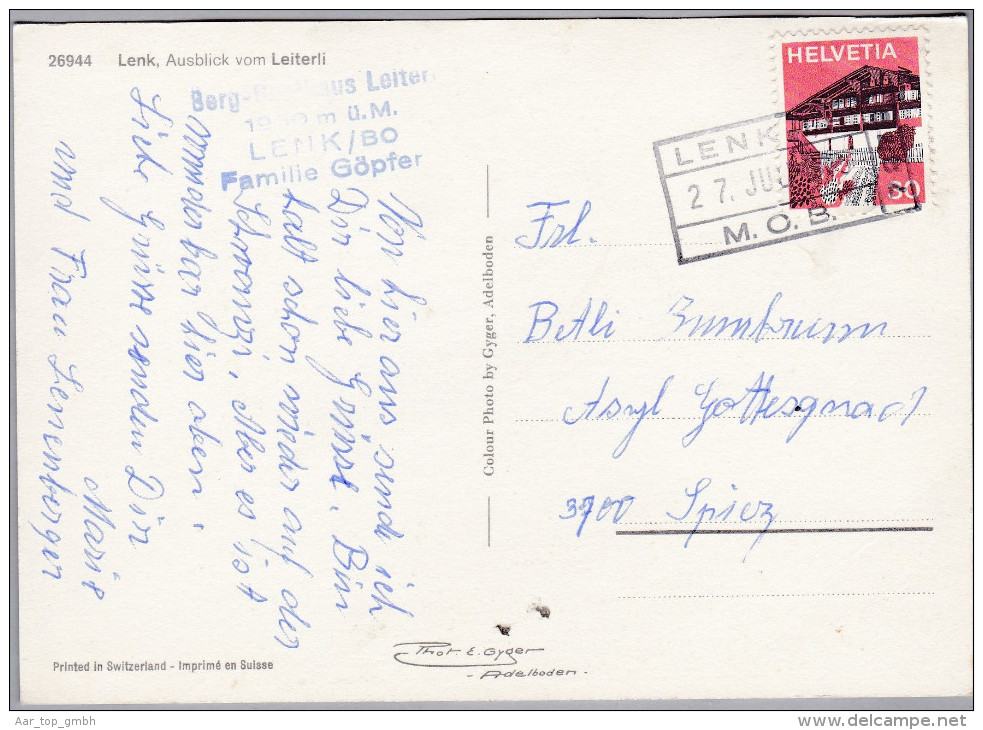 26944 Lenk, Ausblick vom Leiterli
Berg- aus Leiter
m ü.M.
LENK/BO
Familie Göpfer
Von hier aus sende ich
Dir liebe Grüsse. Bin
halt schon wieder auf der
Aber es ist
wunderbar hier oben.
Liebe Grüsse senden Dir
Marie
und Frau Lenenberger
HELVETIA
80
LENK
27. JUL
M.O.B.
Frl.
Betli Zumbrunn
Asyl Gottesgnad
3700 Spiez
Colour Photo by Gyger, Adelboden
Printed in Switzerland - Imprimé en Suisse
Phot. E. Gyger
- Adelboden -
Aar_top_gmbh
delcampe.net